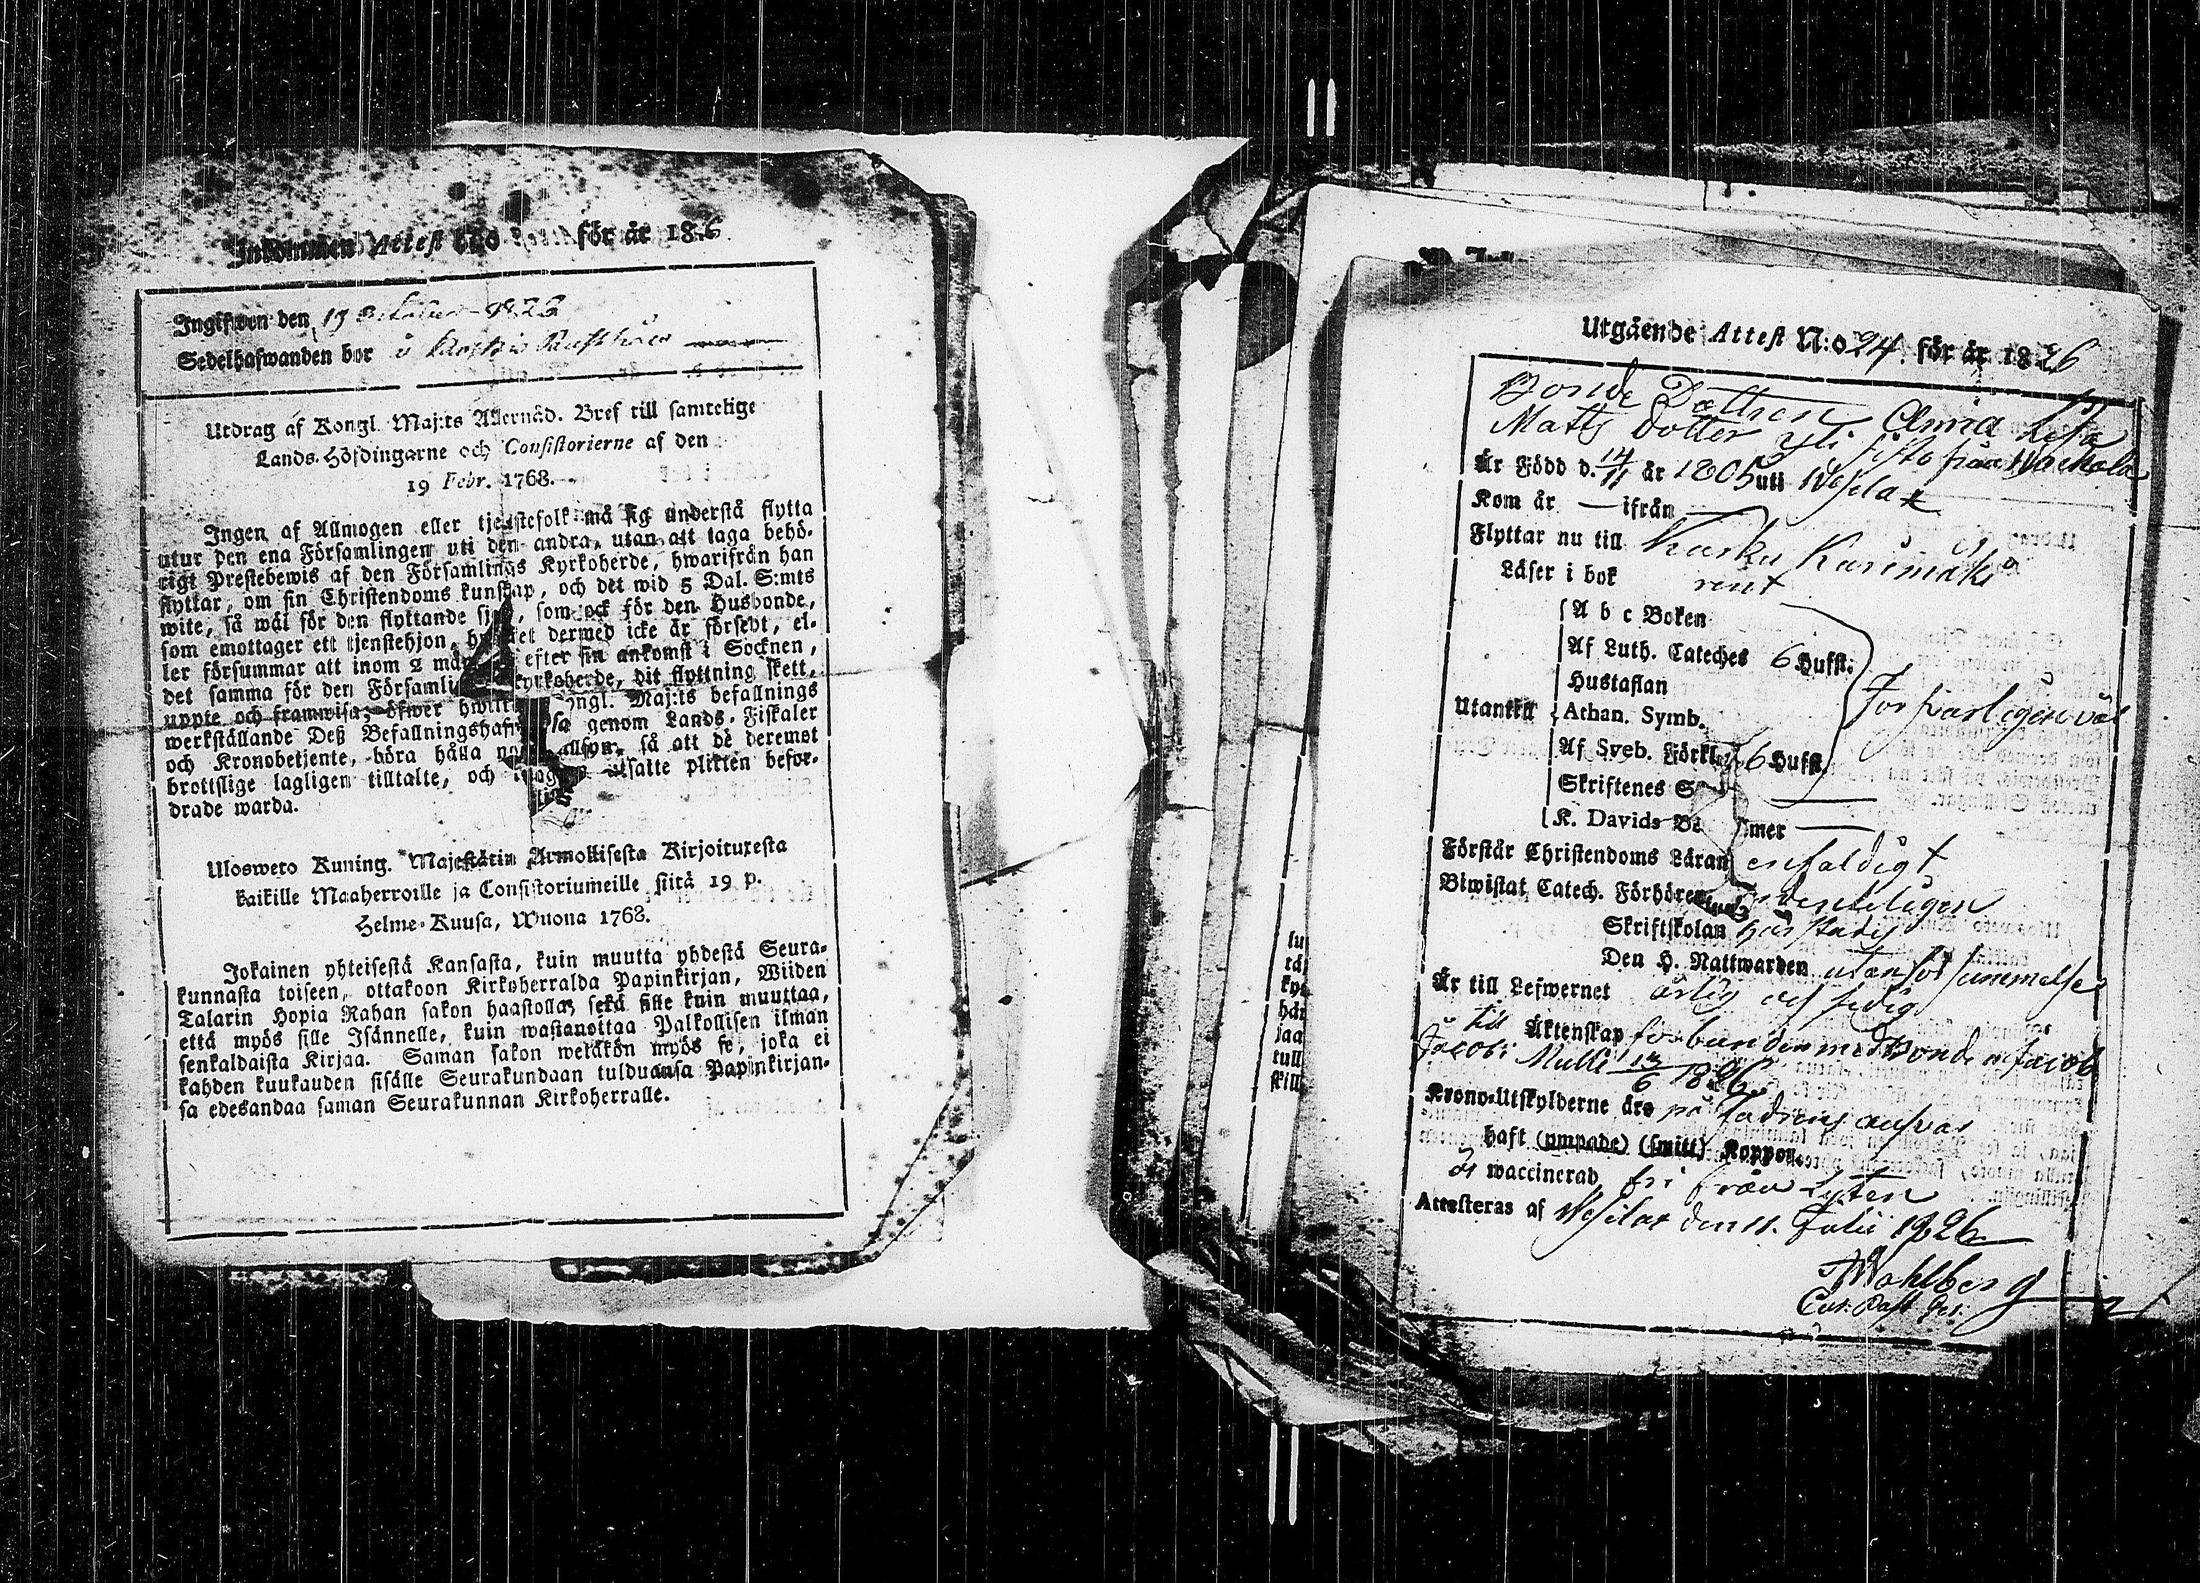 Inkommen Attest N:o för år 18 6
Ingifwen den 19 October 1823
Sedelhafwanden bor i
Utdrag af Kongl. Maj:ts Allernåd. Bref till samtelige
Lands-Höfdingarne och Consistorierne af den
19 Febr. 1768.
Ingen af Allmogen eller tjenstefolk må sig understå flytta
utur den ena Församlingen uti den andra, utan att taga behö-
rigt Prestebewis af den Församlings Kyrkoherde, hwarifrån han
flyttar, om sin Christendoms kunskap, och det wid 5 Dal. S:mts
wite, så wäl för den flyttande sj, som ock för den Husbonde,
som emottager ett tjenstehjon, h et dermed icke är försedt, el-
ler försummar att inom 2 må efter sin ankomst i Socknen,
det samma för den Församli Kyrkoherde, dit flyttning skett,
uppte och framwisa; öfwer hwilk ongl. Maj:ts befallnings
werkställande Deß Befallningshafw sa genom Lands-Fiskaler
och Kronobetjente, böra hålla no allsyn, så att de deremot
brottslige lagligen tilltalte, och utsatte plikten befor-
drade warda.
Ulosweto Kuning. Majestätin Armollisesta Kirjoituxesta
kaikille Maaherroille ja Consistoriumeille siitä 19 p.
Helme-Kuusa, Wuona 1768.
Jokainen yhteisestä Kansasta, kuin muutta yhdestä Seura-
kunnasta toiseen, ottakoon Kirkoherralda Papinkirjan, Wiiden
Talarin Hopia Rahan sakon haastolla, sekä sille kuin muuttaa,
että myös sille Isännelle, kuin wastanottaa Palkollisen ilman
senkaldaista Kirjaa. Saman sakon wetäkön myös se, joka ei
kahden kuukauden sisälle Seurakundaan tulduansa Papinkirjan-
sa edesandaa saman Seurakunnan Kirkoherralle.
lu
tä
kyo
här
jaa
tull
still
Utgående Attest N:o 24. för år 1826
Bonde Dottren Anna Lisa
Matts Dotter Yli Sisto från Warhola
Är Född d. 14/11 år 1805 uti Wesilax
Kom år — ifrån —
Flyttar nu till Karku Karimäki
Läser i bok rent
A b c Boken
Af Luth. Cateches 6 Hufst.
Hustaflan
Utantill Athan. Symb.
Försvarligen väl
Af Sveb. Förkl. 6 Hufst.
Skriftenes S —
K. Davids Bo mer —
Förstår Christendoms Läran enfaldigt
Biwistat Catech. Förhören ordenteligen
Skriftskolan
Den H. Nattwarden utan försummelse
Är till Lefwernet ärlig och sedig
till Äktenskap förbunden med Bonden Jacob
Jacobi Mulli 12/6 1826.
Krono-Utskylderne äro på fadrens answar
haft (ympade) (smitt) Koppor
är waccinerad fri från Lyten
Attesteras af Wesilax den 11. Julii 1826
Wahlberg
Cur. Past. Gen.